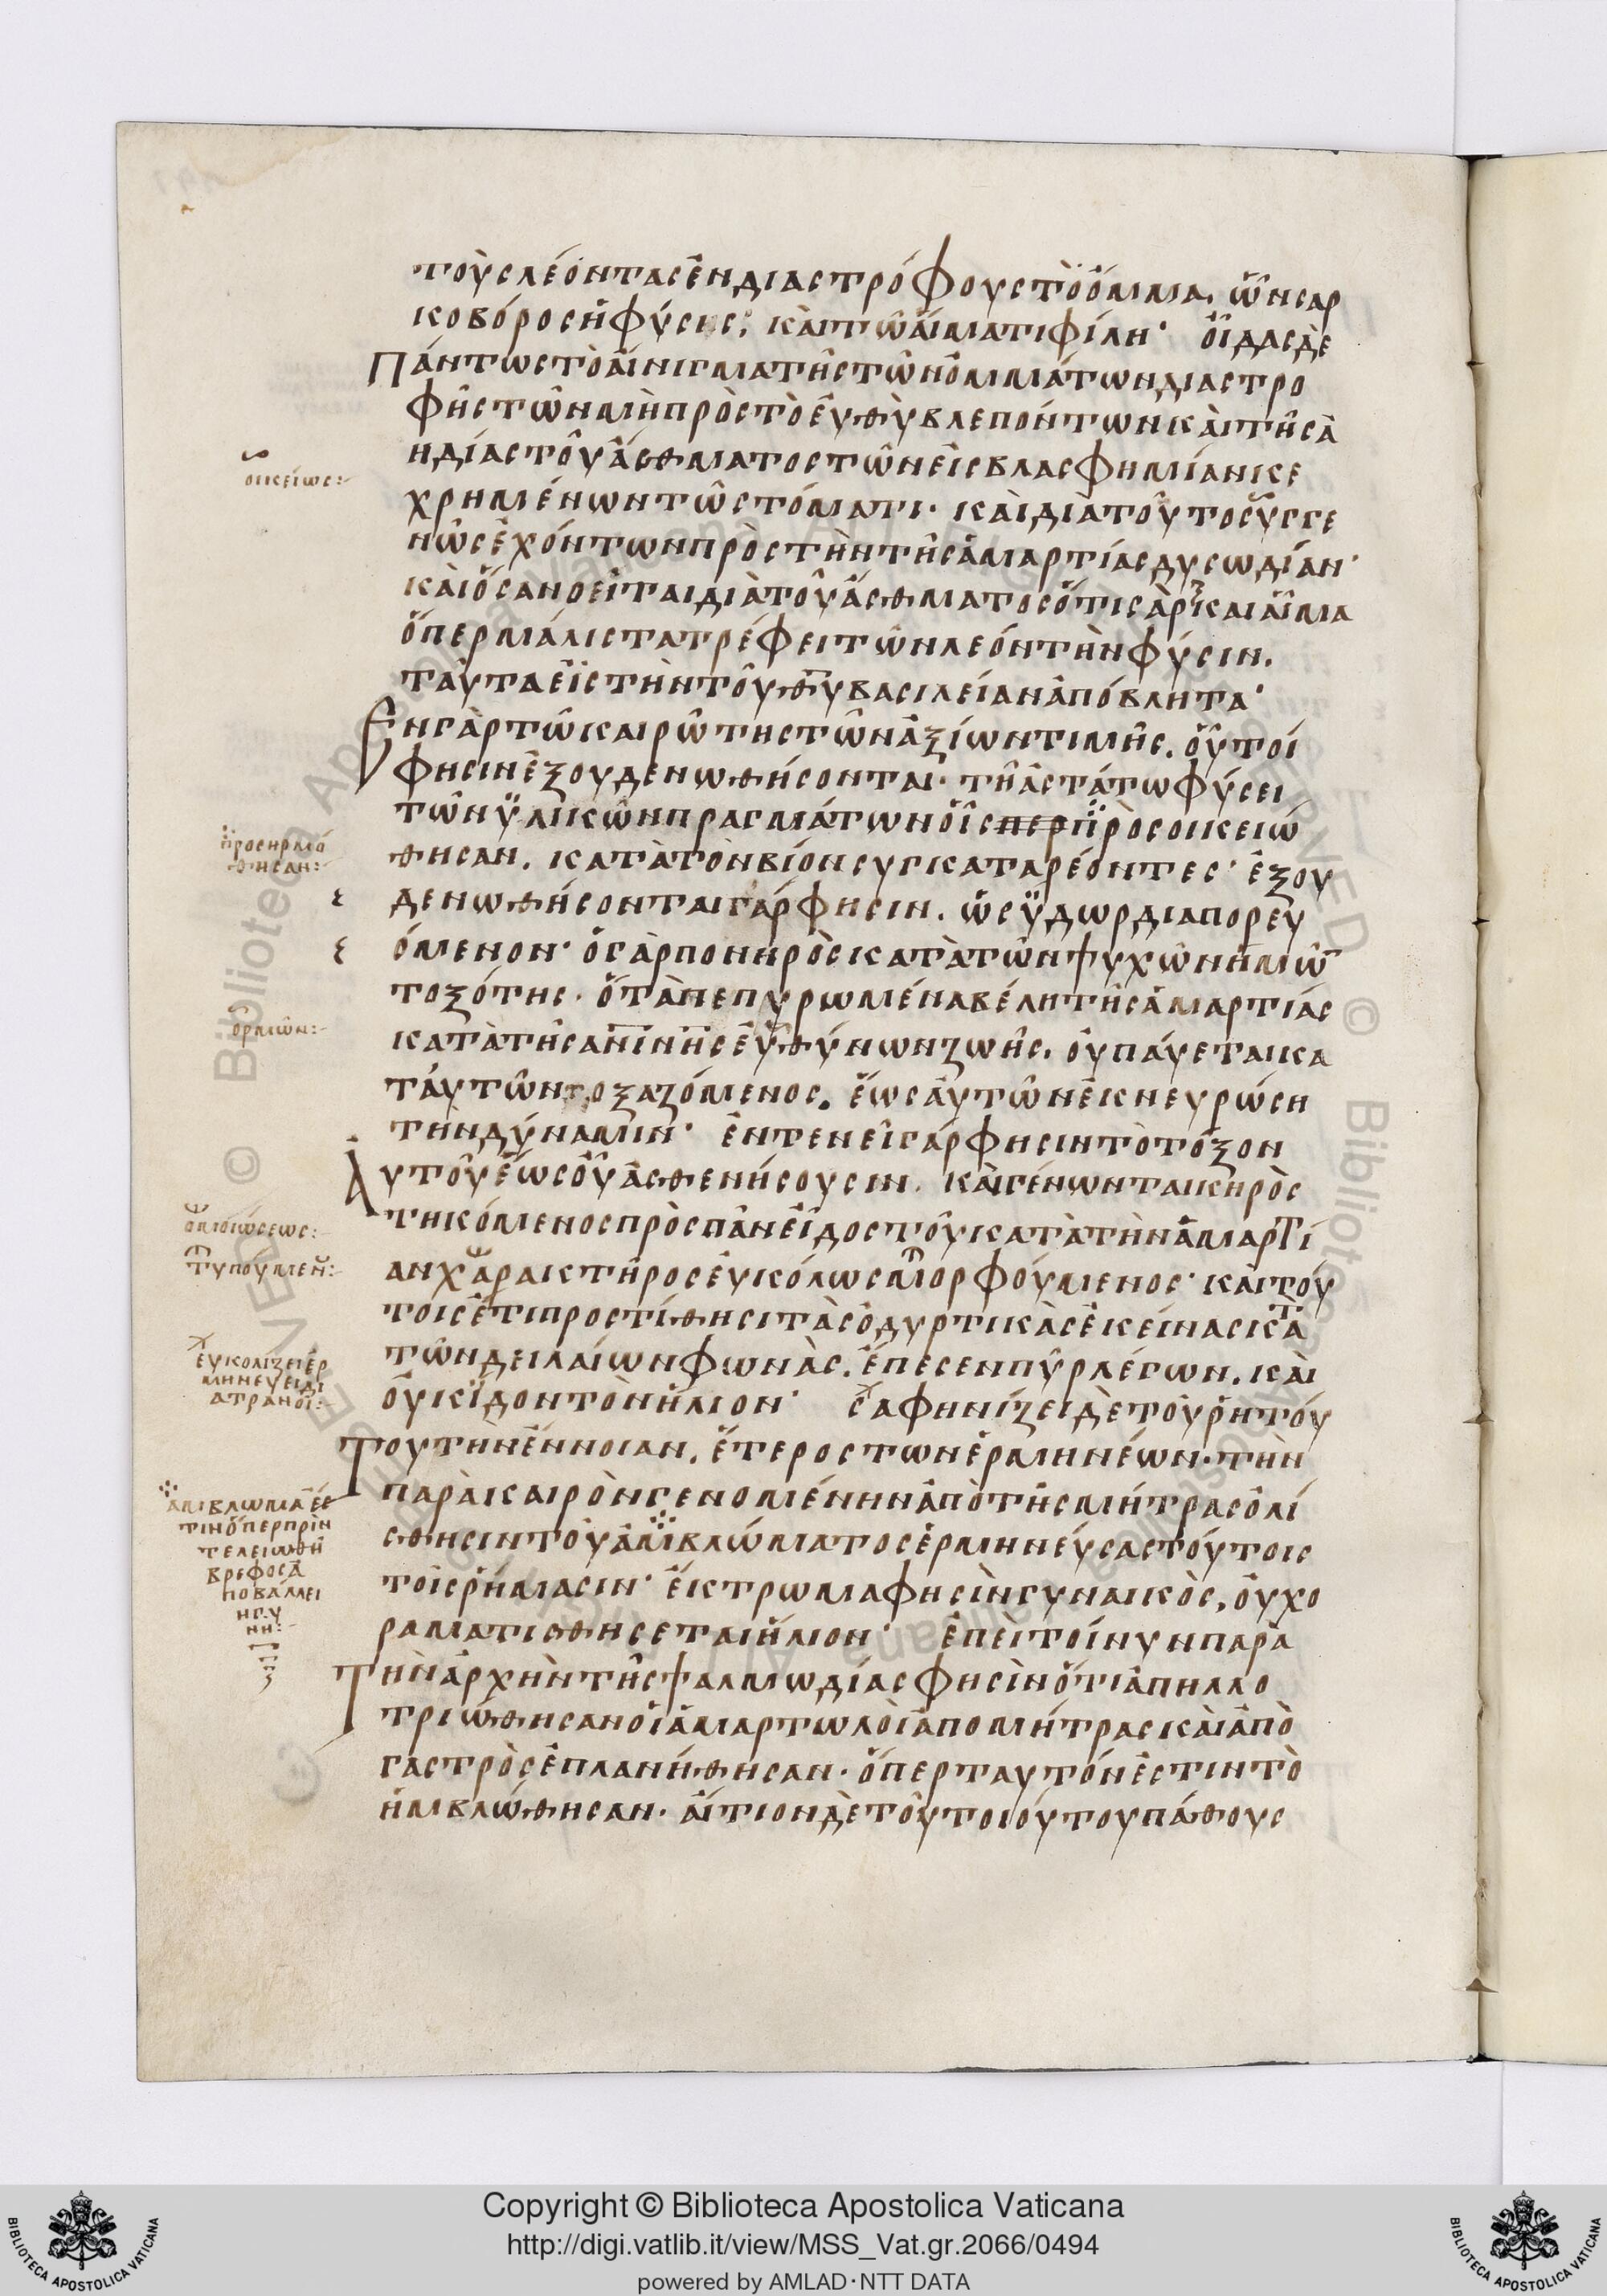 τοὺς λέοντας ἐνδιαστρόφους τὸ ὄμμα. ὧν σαρ
κοβόρος ἡ φύσις, καὶ τῶ αἵματι φίλη· οἶδας δὲ
Πάντως τὸ αἴνιγμα τῆς τῶν ὀμμάτων διαστρο
φῆς τῶν μὴ πρὸς τὸ εὐθὺ βλεπόντων καὶ τῆς ἀ
ηδίας τοῦ ἄσθματος τῶν εἰς βλασφημίαν κε
χρημένων τῶ στόματι· καὶ διὰ τοῦτο συγγε
νῶς ἐχόντων πρὸς τὴν τῆς ἁμαρτίας δυσωδίαν·
καὶ ὅσα νοεῖται διὰ τοῦ ἄσθματος ὅτι σὰρξ καὶ αἷμα
ὅπερ μάλιστα τρέφει τῶν λεόντ τὴν φύσιν.
ταῦτα εἰς τὴν τοῦ θυ βασιλείαν ἀπόβλητα·
Ἐν γὰρ τῶ καιρῶ τῆς τῶν ἀξίων τιμῆς. οὗτοί
φησιν ἐξουδενωθήσονται· τῆ ἀστάτω φύσει
τῶν ὑλικῶν πραγμάτων οἷσπερ προσοικειώ
θησαν. κατὰ τὸν βίον συγκαταρέοντες· ἐξου
δενωθήσονται γάρ φησιν. ὡς ὕδωρ διαπορευ
όμενον· ὁ γὰρ πονηρὸς κατὰ τῶν ψυχῶν ἡμῶ
τοξότης· ὅτ ἀν πεπυρωμένα βέλη τῆς ἁμαρτίας
κατὰ τῆς ανινης εὐθύνων ζωῆς. οὐ παύεται κα
τ αυτῶν τοξαζόμενος. ἕως αὐτῶν ἐκνευρώση
τὴν δύναμιν· ἐντενεῖ γάρ φησιν τὸ τόξον
Αὐτοῦ ἕως οὗ ἀσθενήσουσιν. καὶ γένωνται κηρὸς
τηκόμενος πρὸς πᾶν εἶδος τοῦ κατὰ τὴν ἁμαρτί
αν χαρακτῆρος εὐκόλως μορφούμενος· καὶ τού
τοις ἔτι προστίθησι τὰς ὀδυρτικὰς ἐκείνας κτὰ
τῶν δειλαίων φωνὰς. ἔπεσεν πῦρ λέγων. καὶ
οὐκ ἴδον τὸν ἥλιον· σαφηνίζει δὲ τοῦ ῥητού
Του τὴν ἔννοιαν. ἕτερος τῶν ἑρμηνέων· τὴν
παρὰ καιρὸν γενομένην ἀπὸ τῆς μήτρας ὀλί
σθησιν τοῦ ἀμβλώματος ἑρμηνεύσας τούτοις
τοῖς ῥήμασιν· ἔκτρωμα φησὶν γυναικὸς, οὐχ ο
ραματισθήσεται ἥλιον· ἐπεὶ τοίνυν παρὰ
Τὴν ἀρχὴν τῆς ψαλμωδίας φησὶν ὅτι ἀπηλλο
τριώθησαν οἱ ἁμαρτωλοὶ ἀπο μήτρας καὶ ἀπὸ
γαστρὸς ἐπλανήθησαν· ὅπερ ταυτόν ἐστιν τὸ
ἠμβλώθησαν· αἴτιον δὲ τοῦ τοιούτου πάθους
οικείως:
προσηρμό
θησαν:
ὁρμῶν:
ὁμοιώσεως:
τυπούμεν:
εὐκολίζει ἑρ
μηνεύει δι
ατρανοῖ:
ἀμβλωμα ἐσ
τιν ὅπερ πρὶν
τελειωθῆ
βρεφος ἀ
ποβάλλει
η γυ
νη:
Copyright © Biblioteca Apostolica Vaticana
http://digi.vatlib.it/view/MSS_Vat.gr.2066/0494
powered by AMLAD·NTT DATA
BIBLIOTECA APOSTOLICA VATICANA
BIBLIOTECA APOSTOLICA VATICANA